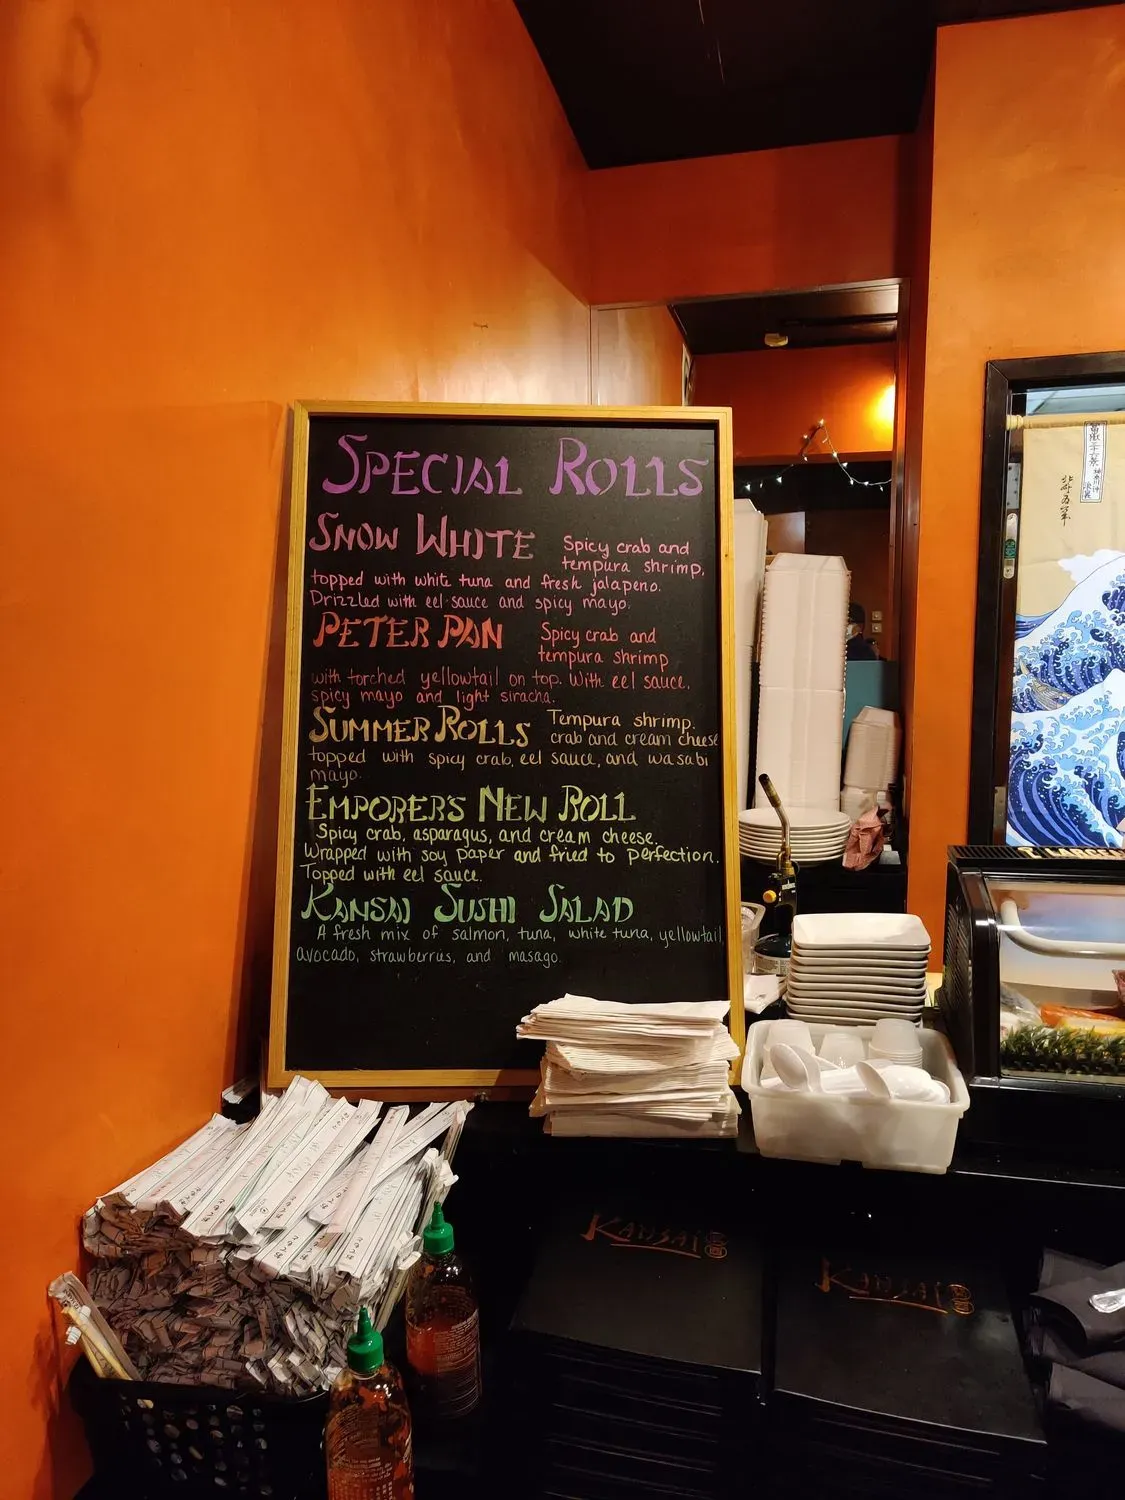 SPECIAL ROLLS
SNOW WHITE Spicy crab and
tempura shrimp,
topped with white tuna and fresh jalapeno.
Drizzled with eel sauce and spicy mayo.
PETER PAN Spicy crab and
tempura shrimp
with torched yellowtail on top. With eel sauce,
spicy mayo and light siracha.
SUMMER ROLLS Tempura shrimp,
crab and cream cheese
topped with spicy crab, eel sauce, and wasabi
mayo.
EMPORER'S NEW ROLL
Spicy crab, asparagus, and cream cheese.
Wrapped with soy paper and fried to perfection.
Topped with eel sauce.
KANSAI SUSHI SALAD
A fresh mix of salmon, tuna, white tuna, yellowtail,
avocado, strawberries, and masago.
冨嶽三十六景 神奈川沖
浪裏
KANSAI
KANSAI